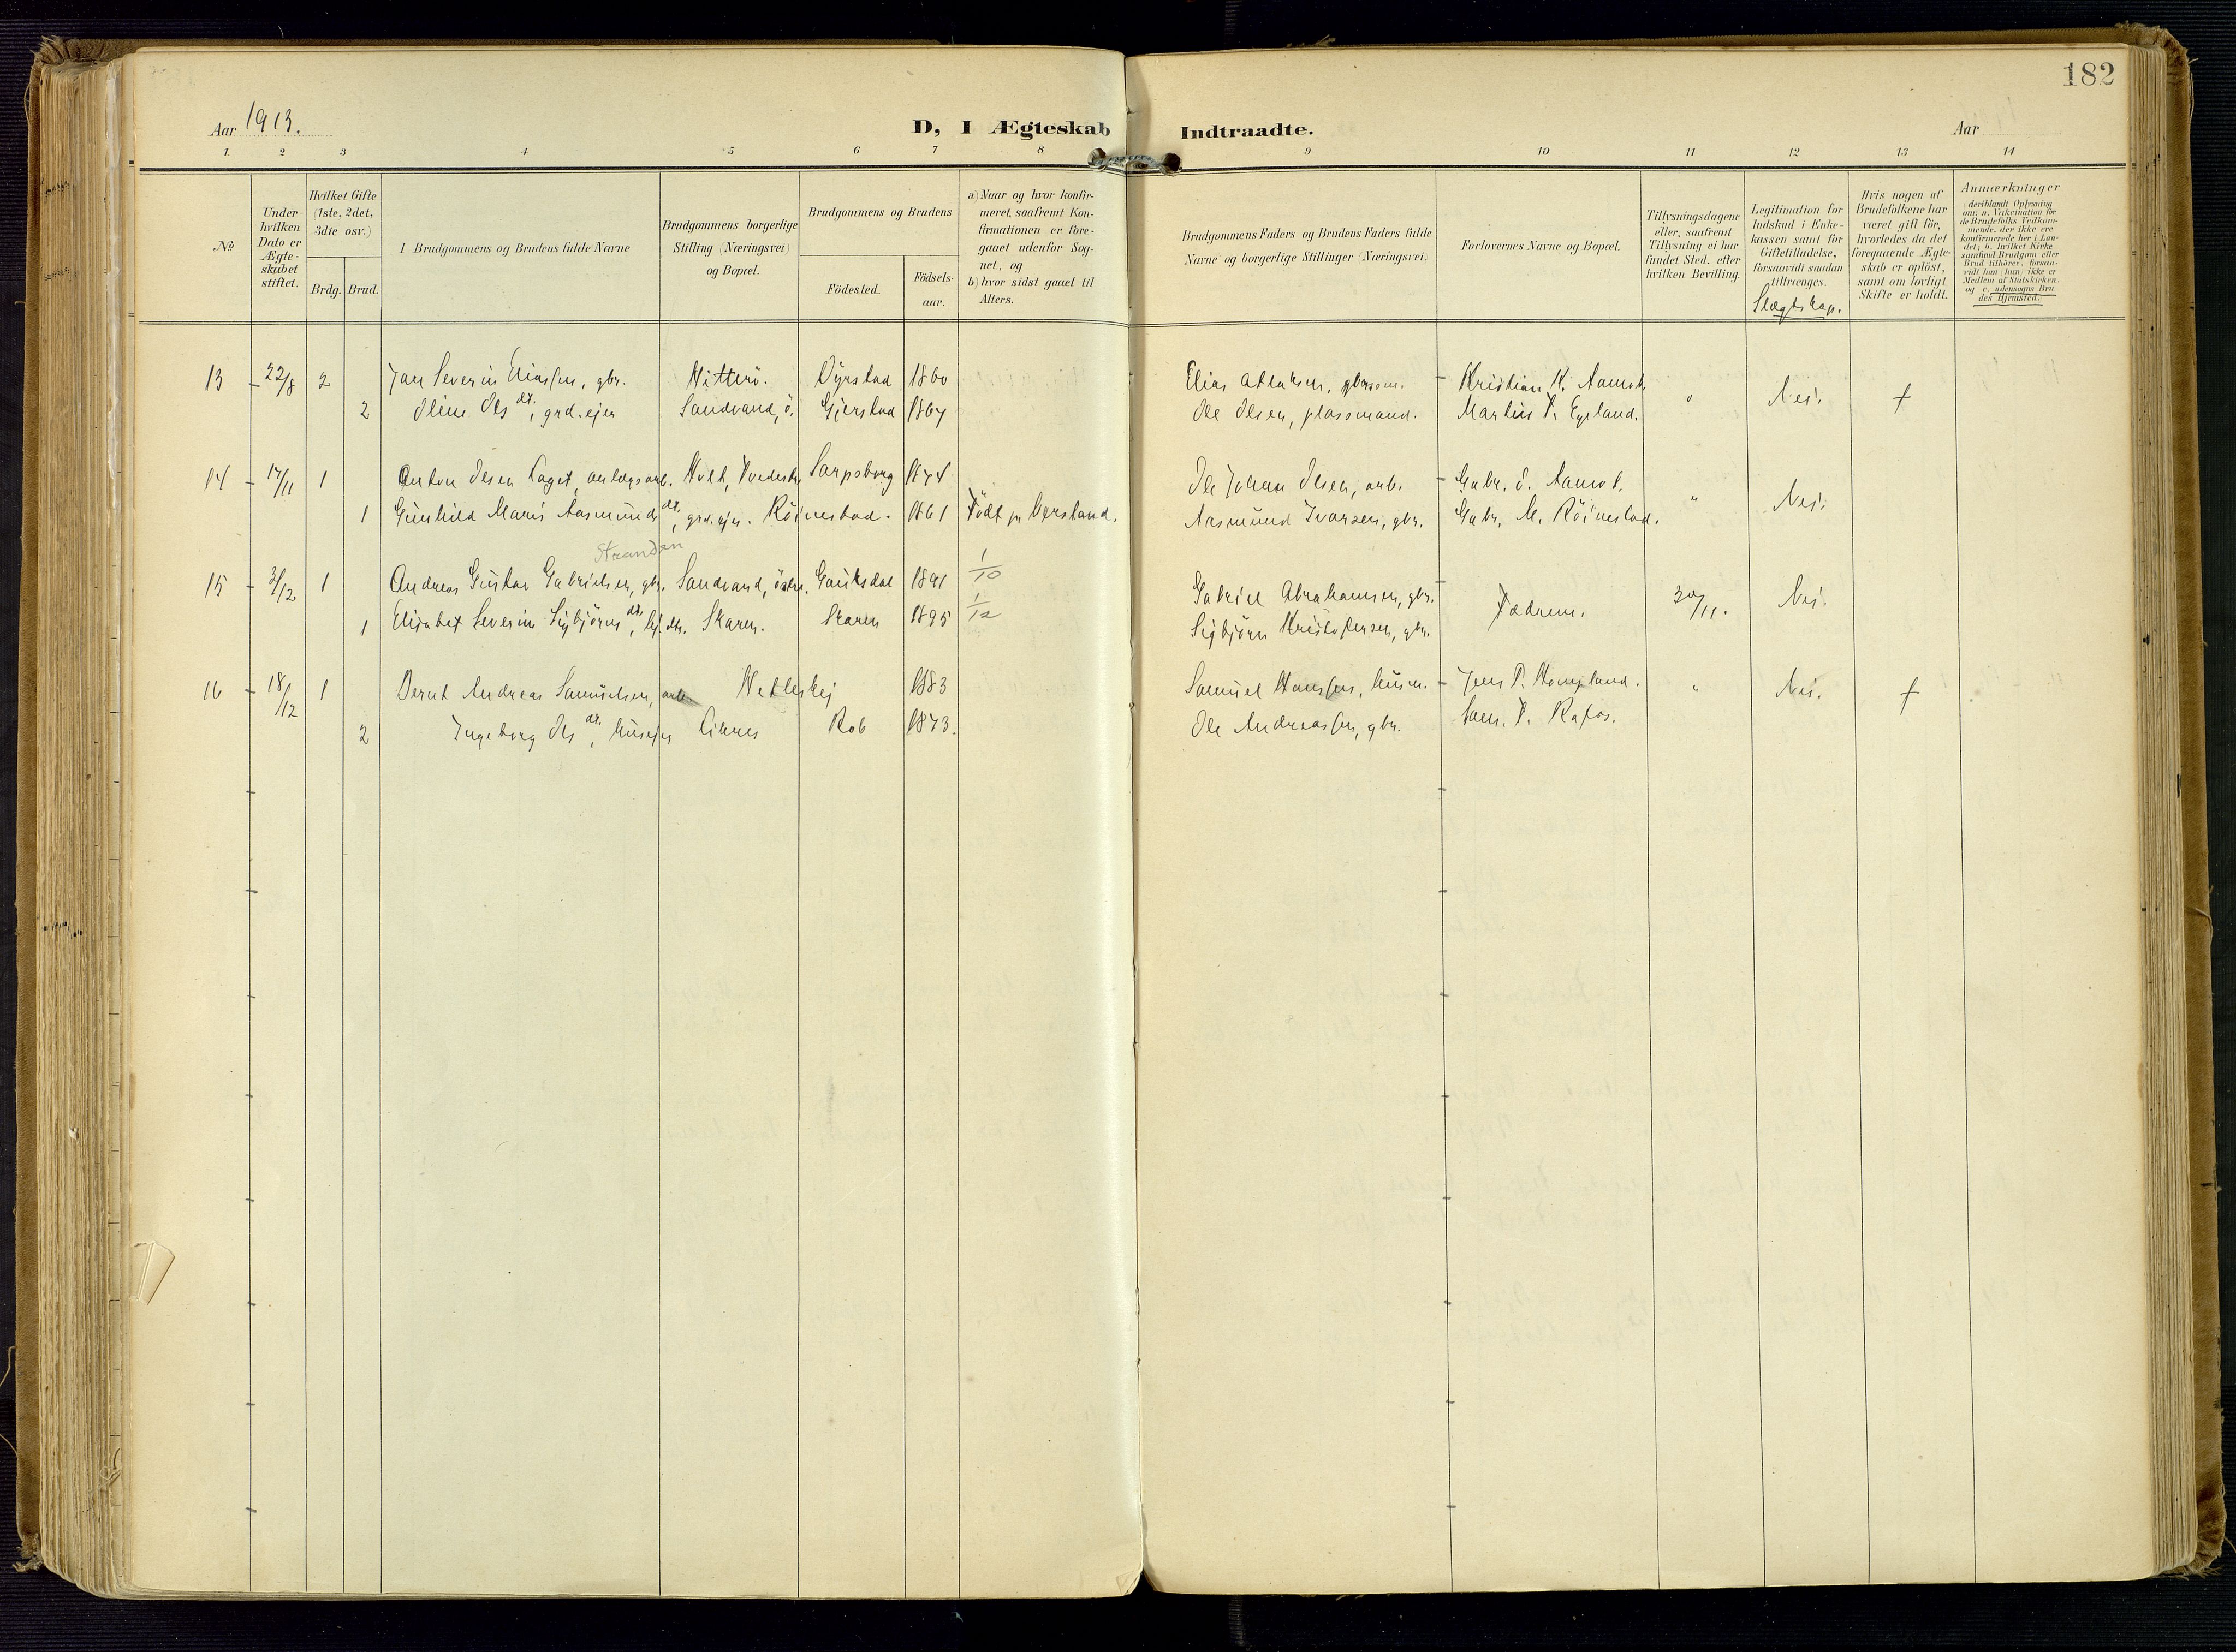 182
Aar 1913.
D, I Ægteskab Indtraadte.
Aar
1 2 3 4 5 6 7 8 9 10 11 12 13 14
No
Under hvilken Dato er Ægteskabet stiftet.
Hvilket Gifte (1ste, 2det, 3die osv.)
Brdg. Brud.
I Brudgommens og Brudens fulde Navne
Brudgommens borgerlige Stilling (Næringsvei) og Bopæl.
Brudgommens og Brudens
Födested. Födselsaar.
a) Naar og hvor konfirmeret, saafremt Konfirmationen er foregaaet udenfor Sognet, og
b) hvor sidst gaaet til Alters.
Brudgommens Faders og Brudens Faders fulde Navne og borgerlige Stillinger (Næringsvei).
Forlovernes Navne og Bopæl.
Tillysningsdagene eller, saafremt Tillysning ei har fundet Sted, efter hvilken Bevilling.
Legitimation for Indskud i Enkekassen samt for Giftetilladelse, forsaavidt saadan tiltrænges.
Slægtskap.
Hvis nogen af Brudefolkene har været gift för, hvorledes da det foregaaende Ægteskab er oplöst, samt om lovligt Skifte er holdt.
Anmerkninger
(deriblandt Oplysning om: a. Vakcination for de Brudefolks Vedkommende, der ikke ere konfirmerede her i Landet; b. hvilket Kirkesamfund Brudgom eller Brud tilhörer, forsaavidt han (hun) ikke er Medlem af Statskirken. og c. udensogns Brudes Hjemsted.
13 22/8 2 Jan Severin Eliassen, gbr. Hitterö. Dyrstad 1860 Elias Atlaksen, Kristian K. Aamot Nei. †
2 Oline Ols dt., grd.ejer Sandvand, ö. Gjerstad 1867 Ole Olsen, plassmand. Martin T. Egeland.
14 17/11 1 Anton Olsen Laget, anlægsarb. Holt, Tvedestr. Sarpsborg 1874 Ole Johan Olsen, arb. Gabr. O. Aamot. " Nei.
1 Gunhild Marie Aasmunds dt., grd.ejer. Röinestad. 1861 Födt pr Versland. Aasmund Ivarsen, gbr. Gabr. M. Röinestad.
Strandan
15 3/12 1 Andreas Gustav Gabrielsen, gbr. Sandvand, östre. Gauksdal 1891 1/10 Gabriel Abrahamsen, gbr. Fædrene. 30/11. Nei.
1 Elisabet Severine Sigbjörns dt. Skaren. Skaren 1895 1/12 Sigbjörn Kristofersen, gbr.
16 18/12 1 Bernt Andreas Samuelsen, arb. Hetleskej 1883 Samuel Hansen, husm. Jens P. Hompland. " Nei. †
2 Ingeborg Ols dt., husejer Liknes Rob 1873. Ole Andreassen, gbr. Sam. T. Rafos.